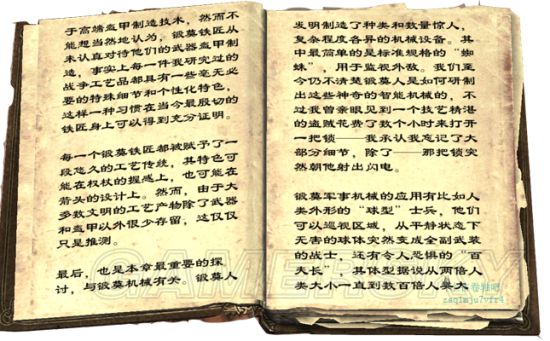 于高端盔甲制造技术，然而不
能想当然地认为，锻莫铁匠从
未认真对待他们的武器盔甲制
造，事实上每一件我研究过的
战手工艺品都具有一些毫无必
要的特殊细节和个性化特色，
这样一种习惯在当今最殷切的
铁匠身上可以得到充分证明。
每一个锻莫铁匠都被赋予了一
段悠久的工艺传统，其特色可
能在权杖的握感上，也可能在
箭头的设计上。然而，由于大
多数文明的工艺产物除了武器
和盔甲以外很少存留，这仅仅
只是推测。
最后，也是本章最重要的探
讨，与锻莫机械有关，锻莫人
发明制造了种类和数量惊人，
复杂程度各异的机械设备，其
中最简单的是标准规格的“蜘
蛛”，用于监视外敌。我们至
今仍不清楚锻莫人是如何研制
出这些神奇的智能机械的，不
过我曾亲眼见到一个技艺精湛
的盗贼花费了数个小时来打开
一把锁——我承认我忘记了大
部分细节，除了——那把锁突
然朝他射出闪电。
锻莫军事机械的应用有比如人
类外形的“球型”士兵，他们
可以巡视区域，从平静状态下
无害的球体突然变成全副武装
的战士，还有令人恐惧的“百
夫长”，其体型据说从两倍人
类大小一直到数百倍人类大
GAMERSKY
卷轴吧